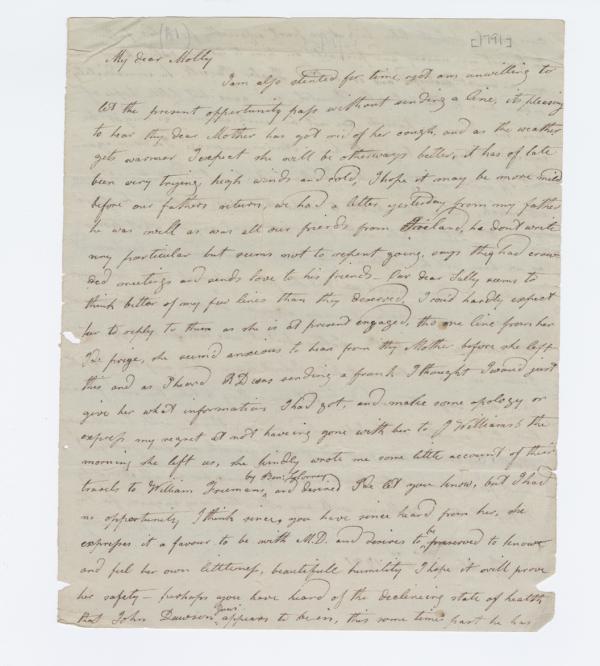 [1791]
My dear Molly
I am also stinted for time, yet am unwilling to
let the present opportunity pass without sending a line, its pleasing
to hear thy dear Mother has got rid of her cough, and as the weather
gets warmer I expect she will be otherways better, it has of late
been very trying, high winds and cold, I hope it may be more mild
before our fathers return, we had a letter yesterday from my father
he was well as was all our friends from Ireland, he dont write
very particular but seems not to repent going, says they had crow-
ded meetings and sends love to his friends Our dear Sally seems to
think better of my few lines than they deserved, I could hardly expect
her to reply to them as she is at present engaged, tho one line from her
I'de prize, she seem'd anxious to hear from thy Mother before she left
this and as I heard RD was sending a frank I thought I woud just
give her what information I had got, and make some apology or
express my regret at not haveing gone with her to J Williams's the
morning she left us, she kindly wrote me some little account of their
travels to William Freemans, by Ben: and desired I'de let you know, but I had
no opportunity, I think since, you have since heard from her, she
expresses it a favour to be with M.D. and desires to be preserved to know
and feel her own littleness, beautifull humility I hope it will prove
her safety – perhaps you have heard of the declineing state of health
that John Dawson appears to be in, this some time past he has